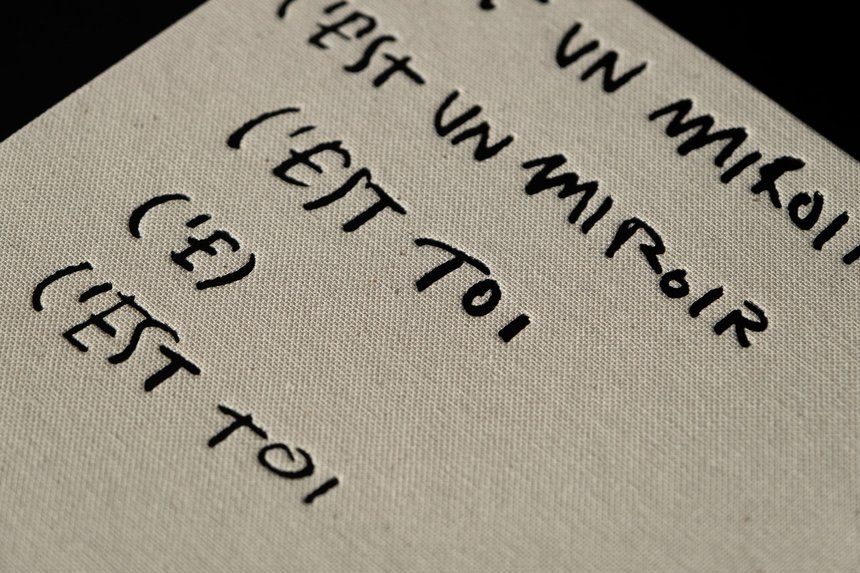 UN MIROI
C'EST UN MIROIR
C'EST TOI
C'E)
C'EST TOI